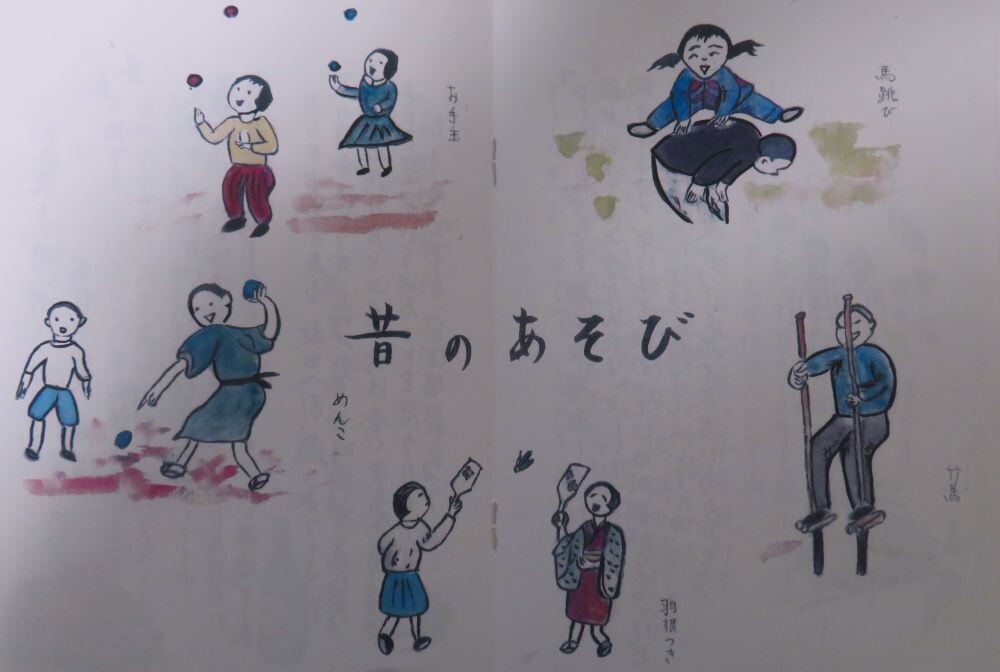 お手玉
馬跳び
昔のあそび
めんこ
竹馬
羽根つき